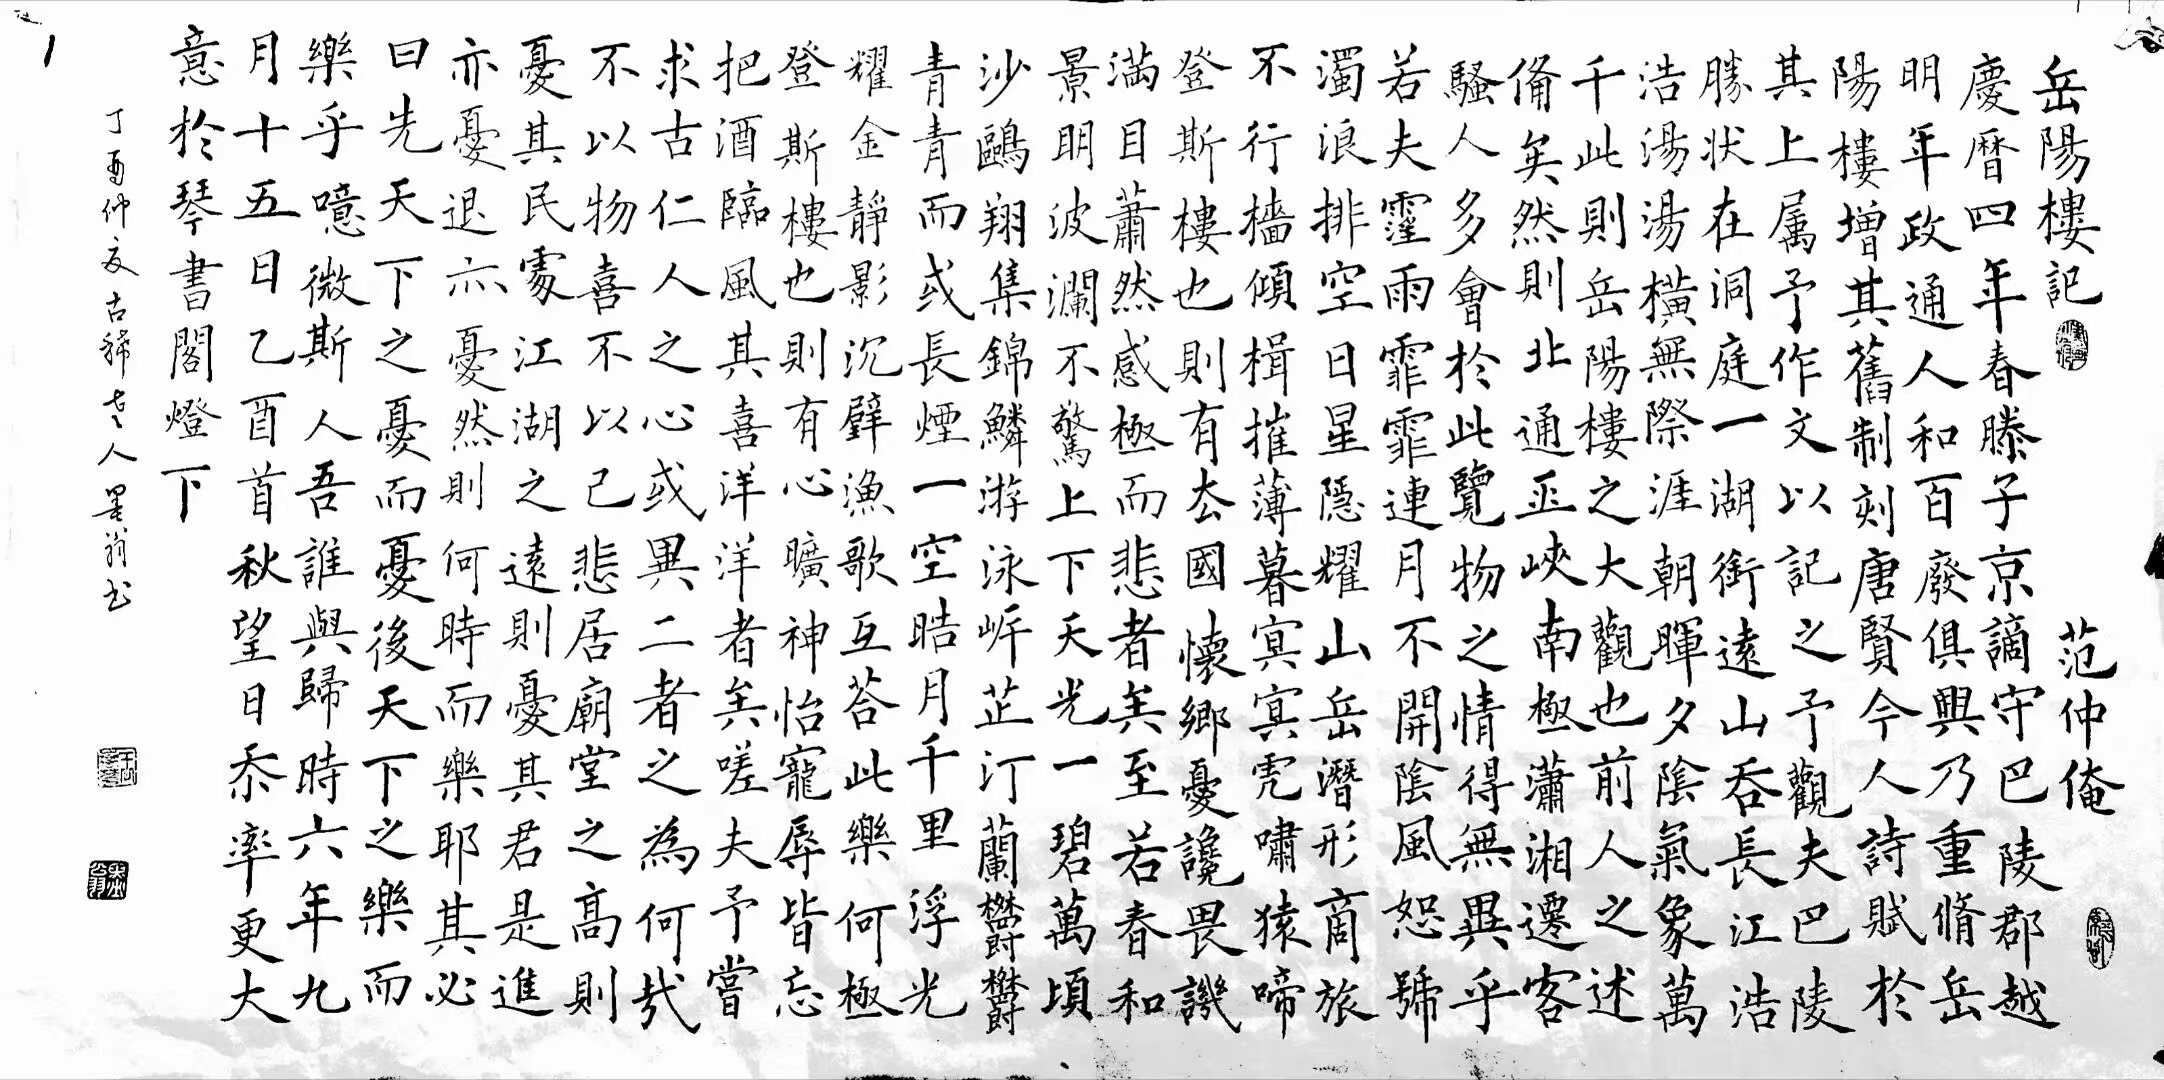 岳陽樓記 范仲俺
慶曆四年春滕子京謫守巴陵郡越
明年政通人和百廢俱興乃重脩岳
陽樓增其舊制刻唐賢今人詩賦於
其上属予作文以記之予觀夫巴陵
勝狀在洞庭一湖銜遠山吞長江浩
浩湯湯橫無際涯朝暉夕陰氣象萬
千此則岳陽樓之大觀也前人之述
備矣然則北通巫峽南極瀟湘遷客
騷人多會於此覽物之情得無異乎
若夫霪雨霏霏連月不開陰風怒號
濁浪排空日星隱耀山岳潛形商旅
不行檣傾楫摧薄暮冥冥虎嘯猿啼
登斯樓也則有去國懷鄉憂讒畏譏
滿目蕭然感極而悲者矣至若春和
景明波瀾不驚上下天光一碧萬頃
沙鷗翔集錦鱗游泳岸芷汀蘭鬱鬱
青青而或長煙一空皓月千里浮光
耀金靜影沉璧漁歌互荅此樂何極
登斯樓也則有心曠神怡寵辱皆忘
把酒臨風其喜洋洋者矣嗟夫予嘗
求古仁人之心或異二者之為何哉
不以物喜不以己悲居廟堂之高則
憂其民處江湖之遠則憂其君是進
亦憂退亦憂然則何時而樂耶其必
曰先天下之憂而憂後天下之樂而
樂乎噫微斯人吾誰與歸時六年九
月十五日乙酉首秋望日忝率更大
意於琴書閣燈下
丁酉仲夏古稀老人墨翁书